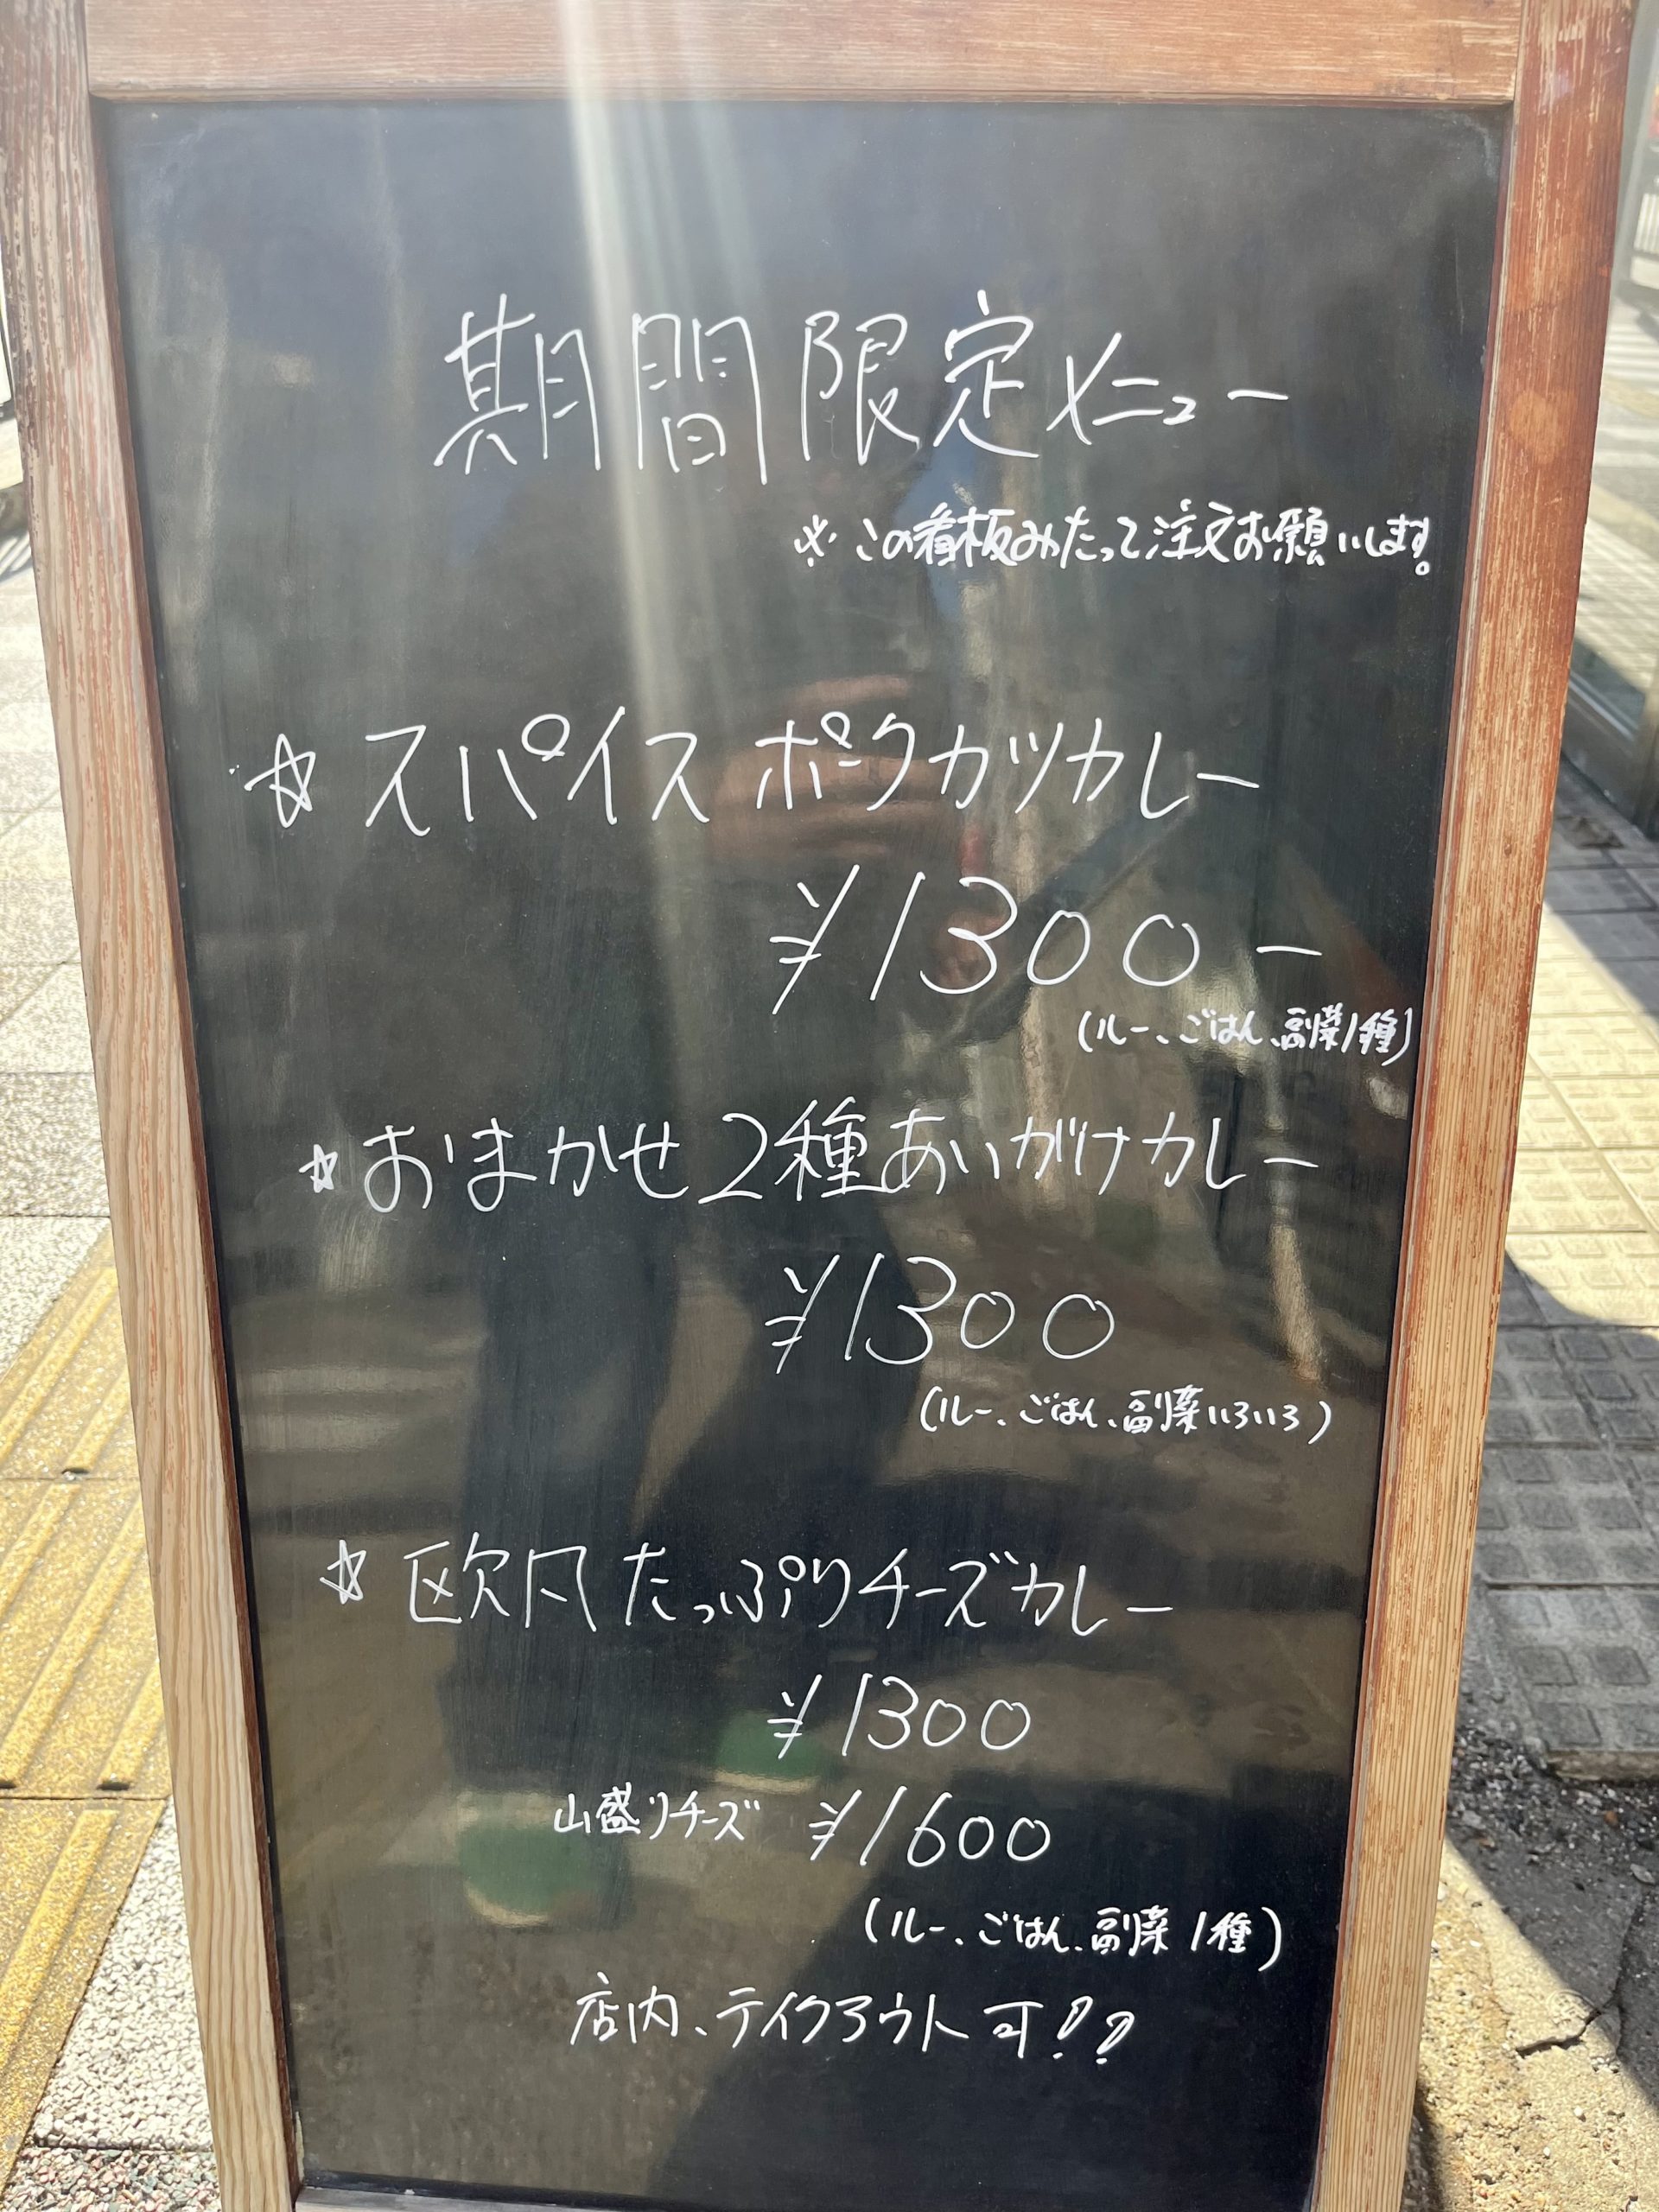 期間限定メニュー
※この看板みたって注文お願いします。
☆スパイスポークカツカレー
¥1300ー
(ルー、ごはん、副菜1種)
☆おまかせ2種あいがけカレー
¥1300
(ルー、ごはん、副菜いろいろ)
☆欧風たっぷりチーズカレー
¥1300
山盛りチーズ ¥1600
(ルー、ごはん、副菜1種)
店内、テイクアウト可!!